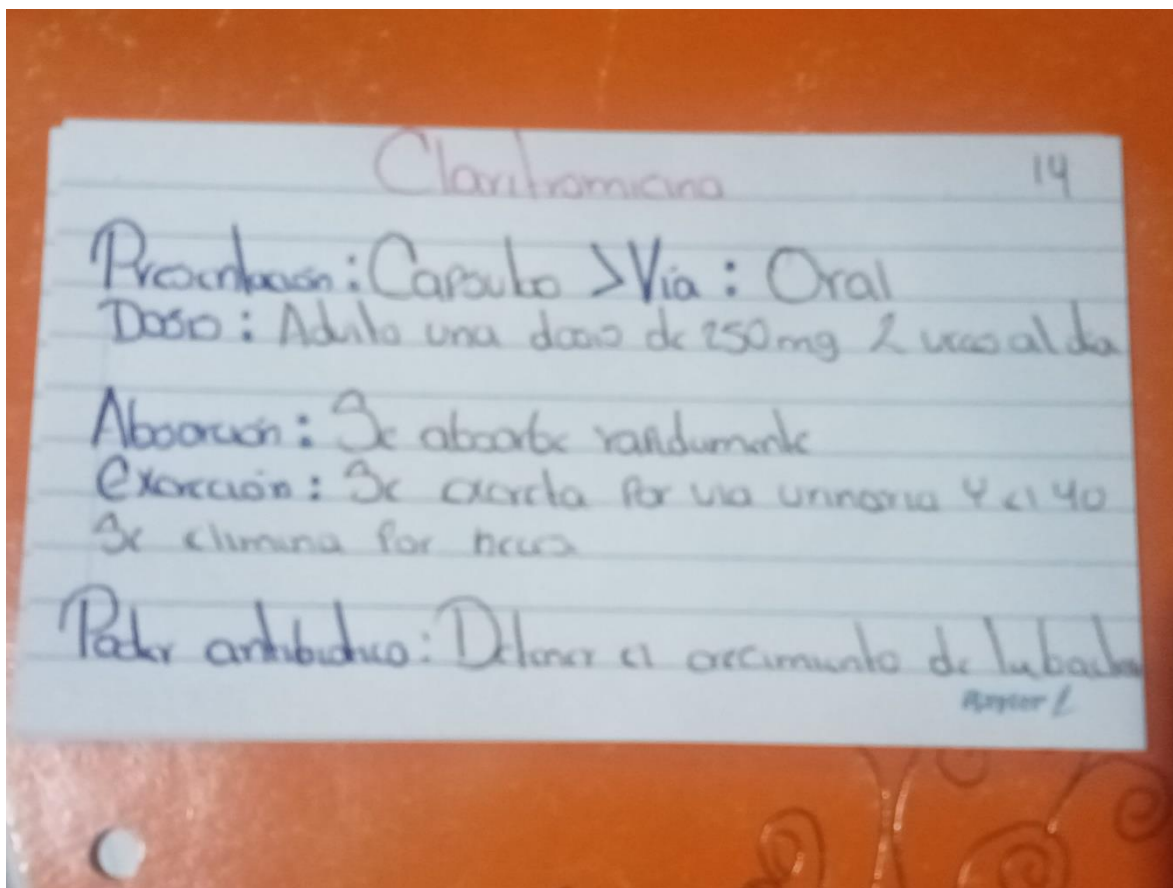 Claritromicina 14
Presentación: Capsula > Vía: Oral
Dosis: Adulto una dosis de 250mg 2 veces al dia
Absorción: Se absorbe rapidamente
Excreción: Se excreta por via urinaria y el 40
Se elimina por heces
Poder antibiotico: Detener el crecimiento de la bacteria